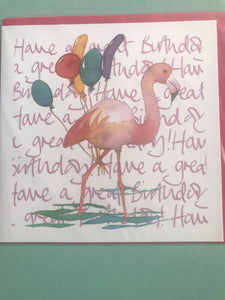 Have a great Birthday
a great Birthday! Have
Birthday! Have a great
Have a great Birthday
a great Birthday! Have
Birthday! Have a great
Have a great Birthday
a great Birthday! Have